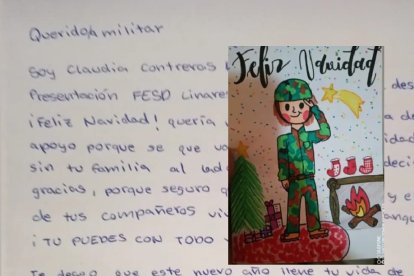 Querido/a militar
Soy Claudia Contreras
Presentación FESD Linares
¡Feliz Navidad! quería
apoyo porque se que
sin tu familia al lad
gracias, porque seguro q
de tus compañeros viv
¡TU PUEDES CON TODO Y
Te deseo que este nuevo año llene tu vida de
Feliz Navidad